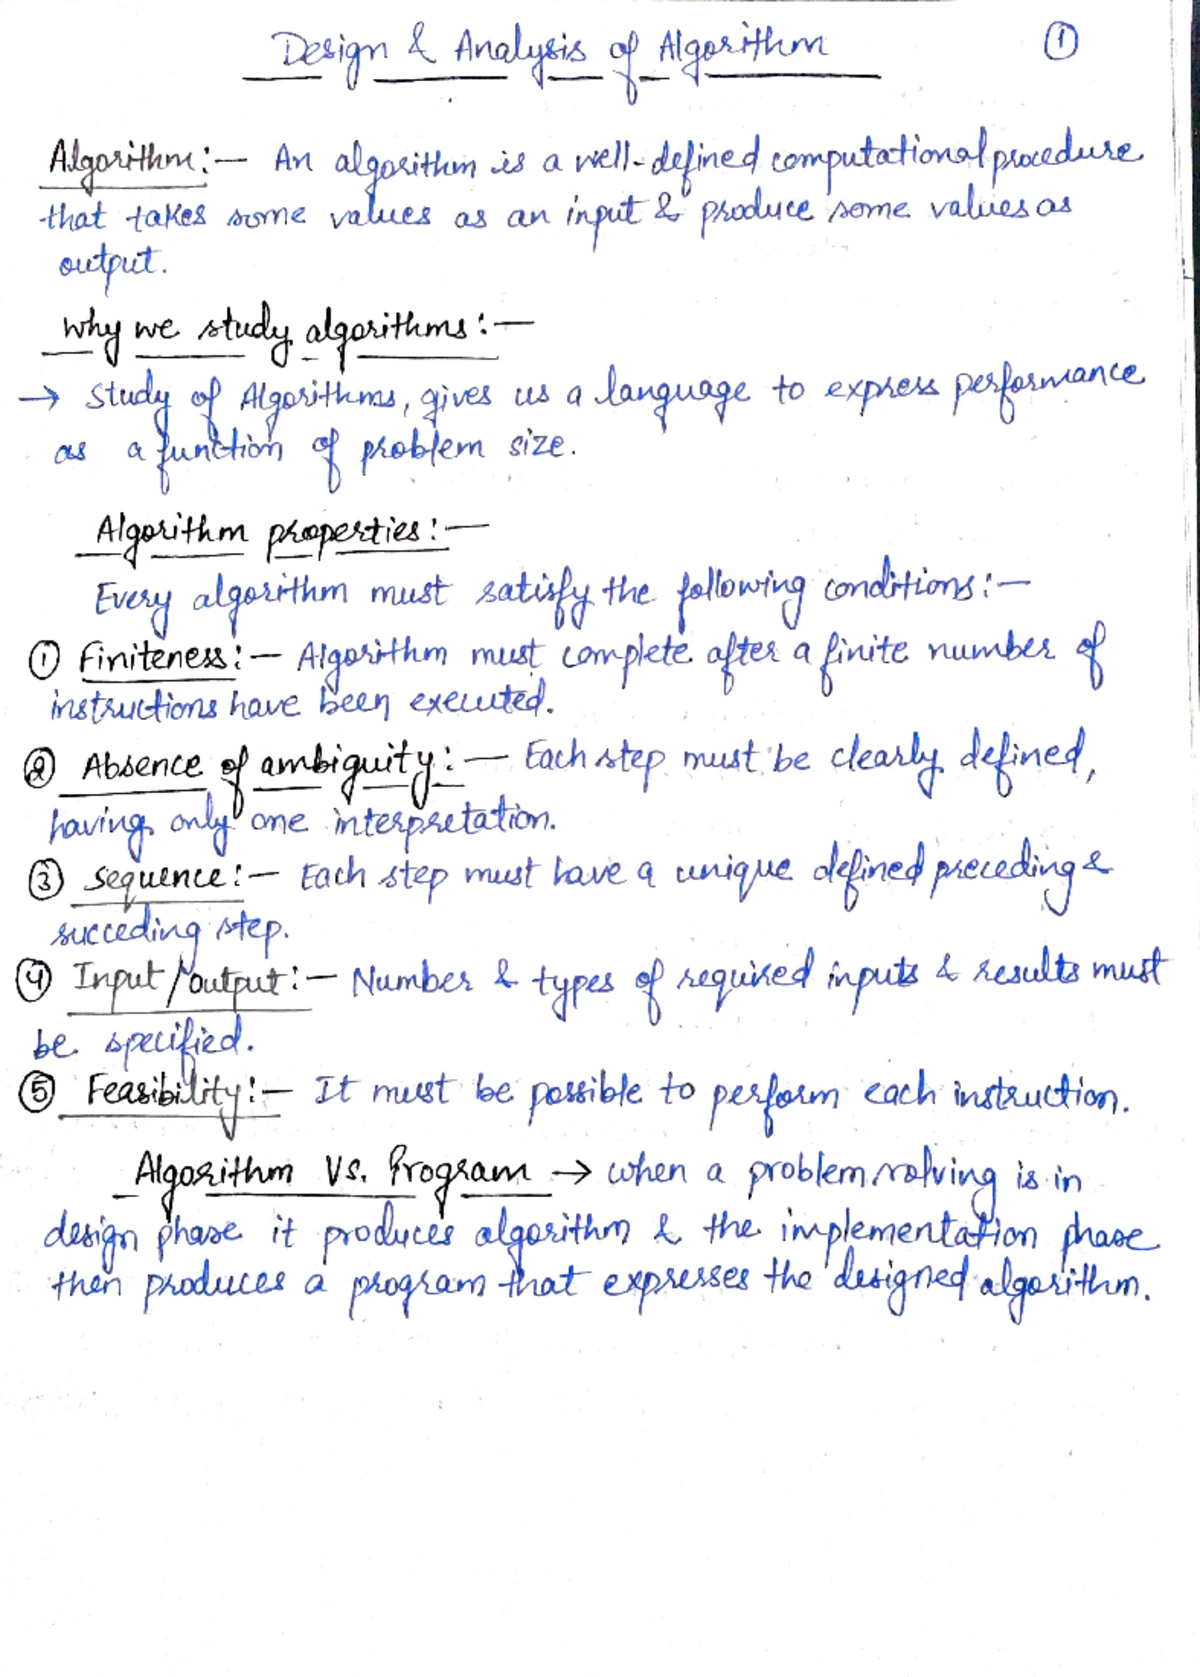 Design & Analysis of Algorithm
1
Algorithm:— An algorithm is a well-defined computational procedure
that takes some values as an input & produce some values as
output.
why we study algorithms:—
→ Study of Algorithms, gives us a language to express performance
as a function of problem size.
Algorithm properties:—
Every algorithm must satisfy the following conditions:—
① Finiteness:— Algorithm must complete after a finite number of
instructions have been executed.
② Absence of ambiguity:— Each step must be clearly defined,
having only one interpretation.
③ Sequence:— Each step must have a unique defined preceding &
succeding step.
④ Input/output:— Number & types of required inputs & results must
be specified.
⑤ Feasibility:— It must be possible to perform each instruction.
Algorithm Vs. Program → when a problem solving is in
design phase it produces algorithm & the implementation phase
then produces a program that expresses the designed algorithm.